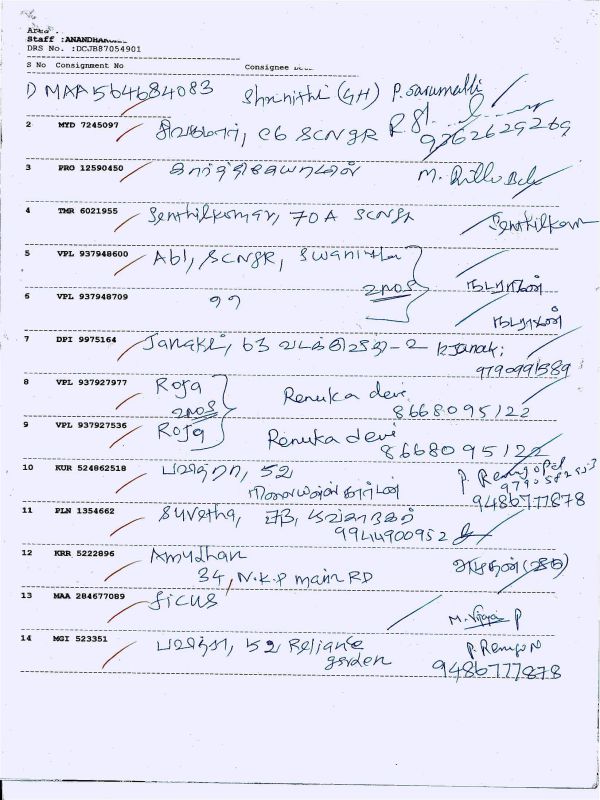 Staff :ANANDHA
DRS No. :DCJB87054901
S No Consignment No Consignee
1) MAA 564684083 Shrinithi (GH) P. Sarumathi
2 MYD 7245097 சிவகுமார், C6 SCNGR 9362629269
3 PRO 12590450 கார்த்திகேயாயினி M.
4 TMR 6021955 Senthilkumar, 70A SCNGR Senthilkum
5 VPL 937948600 Abi, SCNGR, Swanitha நடராஜன்
2nos
6 VPL 937948709 " நடராஜன்
7 DPI 9975164 Janaki, 63 வடக்குவீதி-2 K Janaki
9790991589
8 VPL 937927977 Roja Renuka devi
2nos 8668095122
9 VPL 937927536 Roja Renuka devi
8668095122
10 KUR 524862518 பவித்ரா, 52 P.
கார்டன் 9486777878
11 PLN 1354662 Suretha,
9944900952
12 KRR 5222896 Amudhan
34, N.K.P main RD அமுதன்
13 MAA 284677089 ficus M. Vijaya P
14 MGI 523351 பவித்ரா, 52 Reliance P.
garden 9486777878